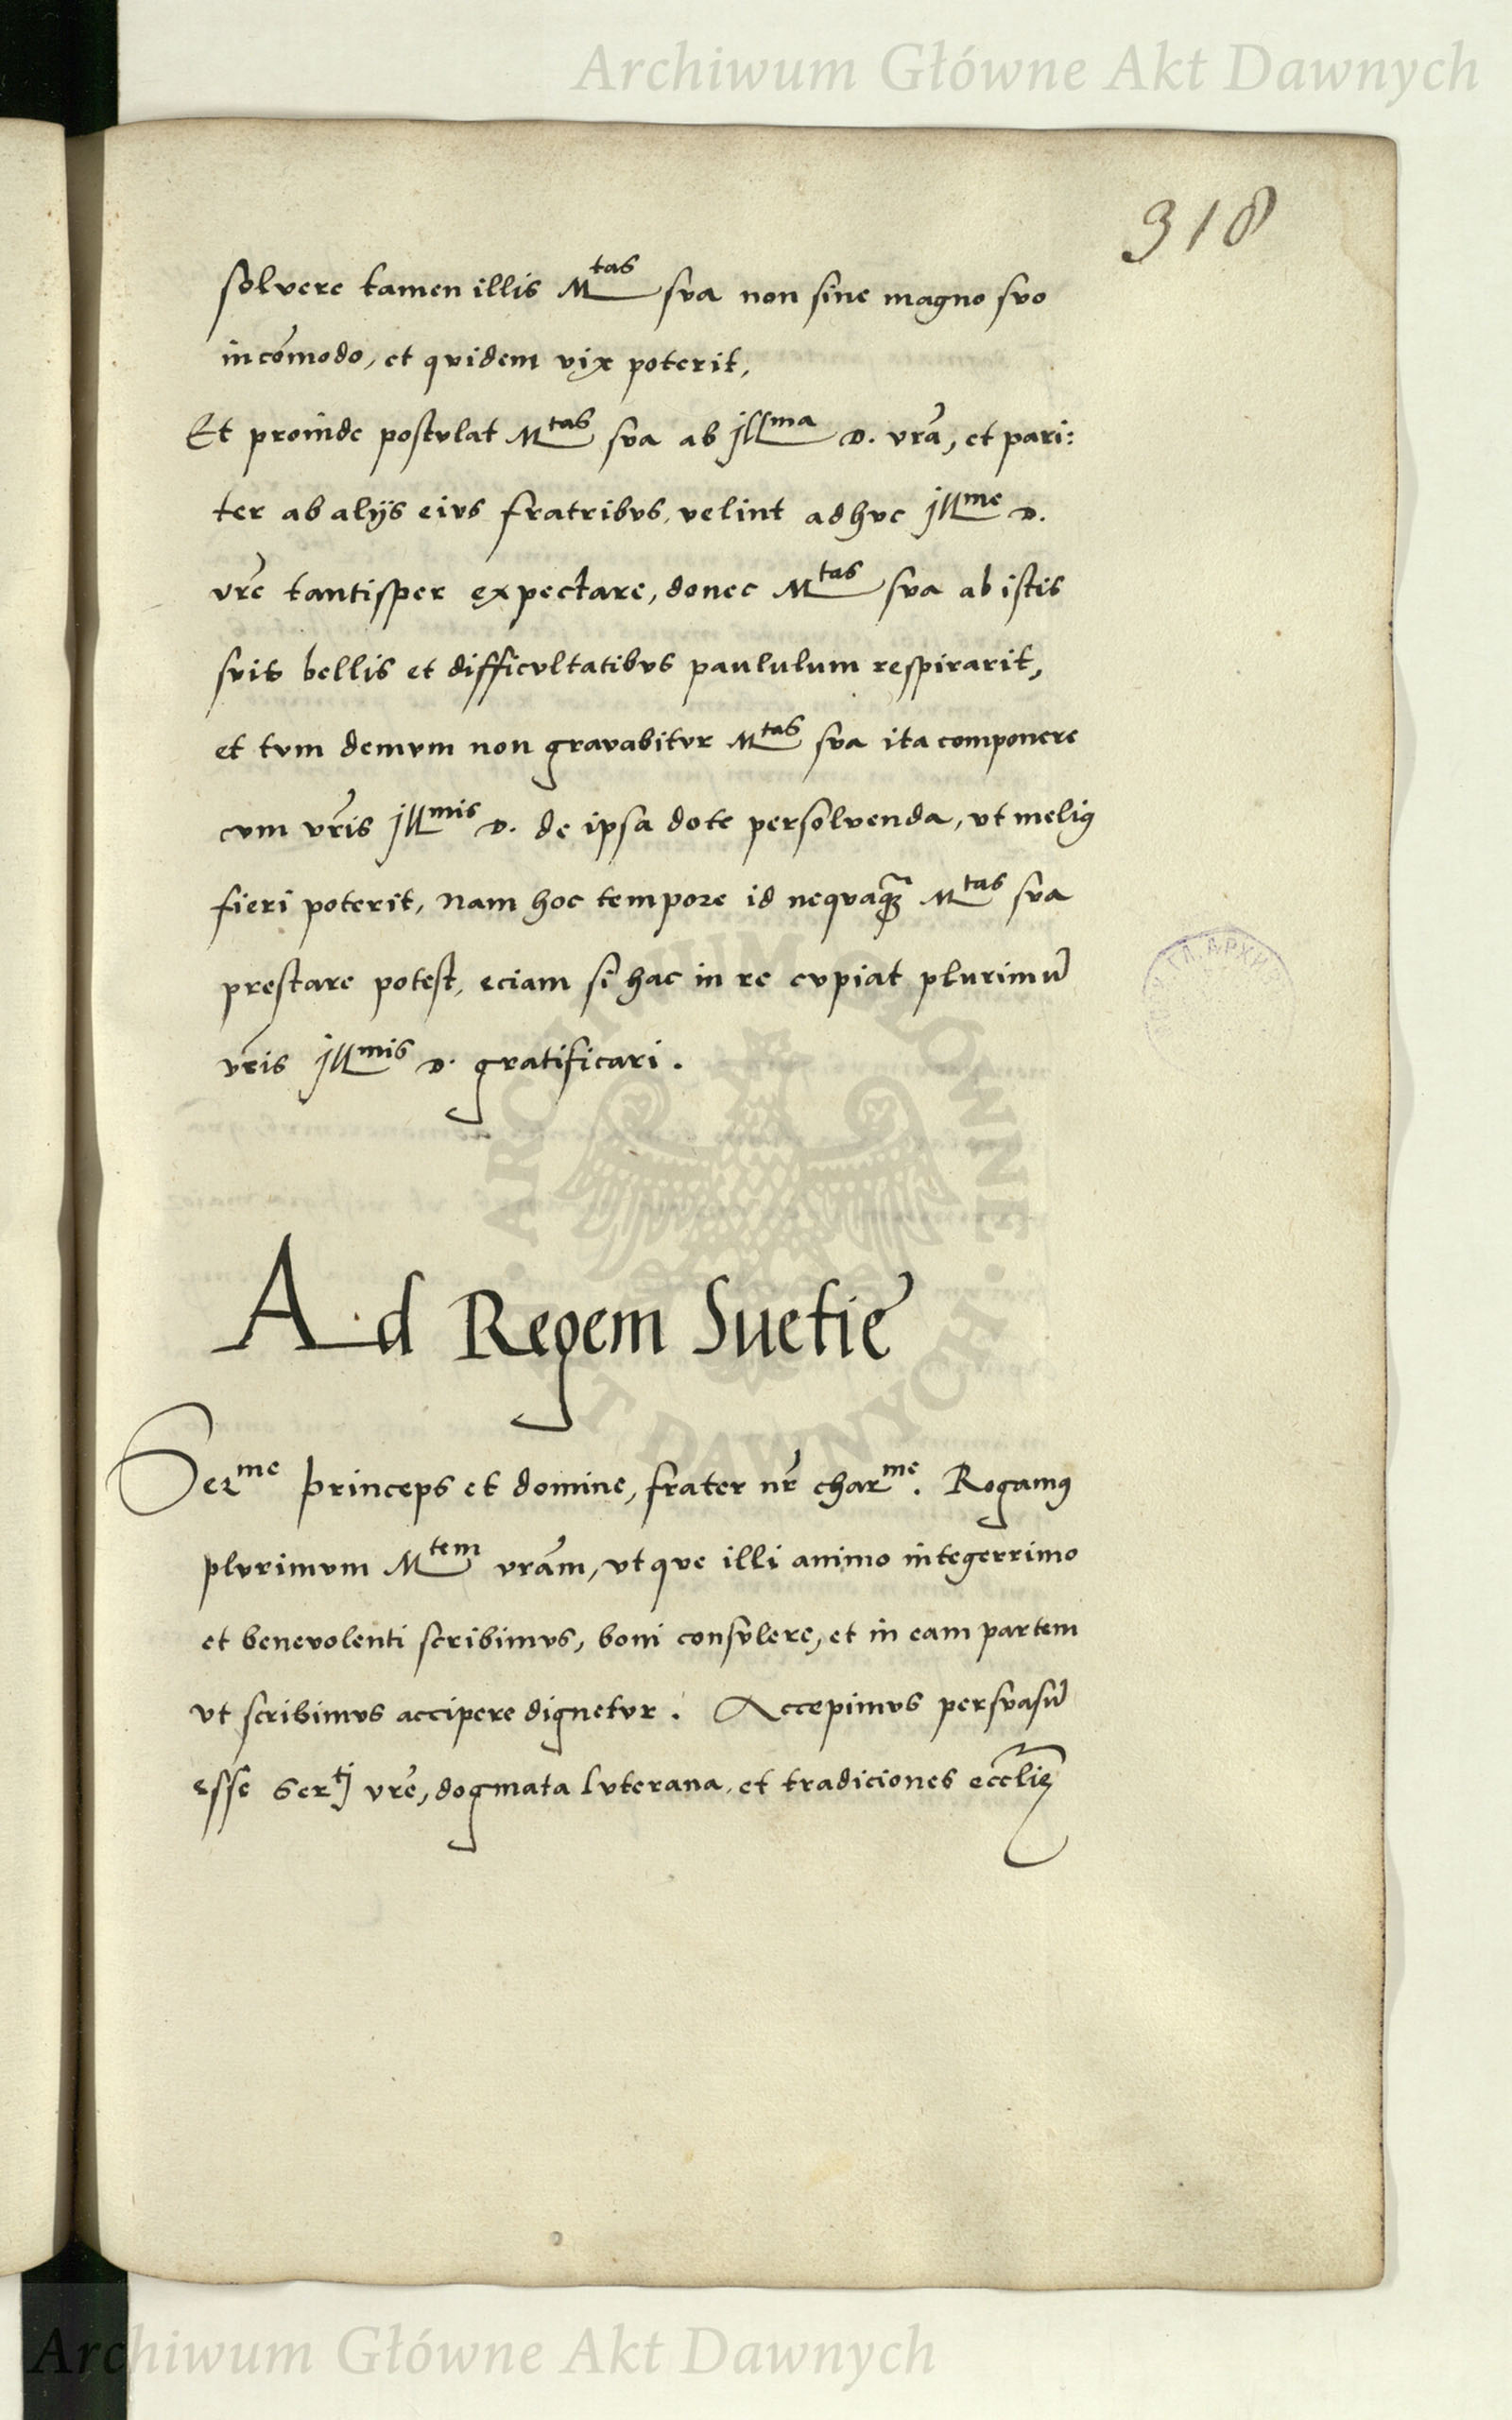 Archiwum Główne Akt Dawnych
318
solvere tamen illis M^tas sva non sine magno svo
incōmodo, et qvidem vix poterit,
Et proinde postvlat M^tas sva ab jll^ma D. vrā, et pari:
ter ab alijs eivs fratribvs, velint adhvc jll^me D.
vrē tantisper expectare, donec M^tas sva ab istis
svis bellis et difficvltatibvs paululum respirarit,
et tvm demvm non gravabitvr M^tas sva ita componere
cvm vrīs jll^mis D. de ipsa dote persolvenda, vt meliꝰ
fieri poterit, Nam hoc tempore id neqvaq̃ꝫ M^tas sva
prestare potest, eciam si hac in re cvpiat plurimū
vrīs jll^mis D. gratificari.
ARCHIWUM GŁÓWNE AKT DAWNYCH
Ad Regem Suetie
Ser^me princeps et domine, frater nr̄ char^me. Rogamꝰ
plvrimvm M^tem vrām, vt qve illi animo integerrimo
et benevolenti scribimvs, boni consvlere, et in eam partem
vt scribimvs accipere dignetvr. Accepimvs persvasū
esse Ser^tj vrē, dogmata lvterana, et tradiciones eccl̄ię
Archiwum Główne Akt Dawnych